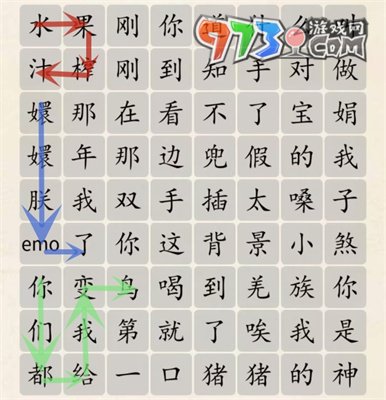 水果刚你道
973游戏网
汁榨刚到知手对做
嬛那在看不了宝娟
嬛年那边兜假的我
朕我双手插太嗓子
emo了你这背景小煞
你变鸟喝到羌族你
们我第就了唉我是
都给一口猪猪的神